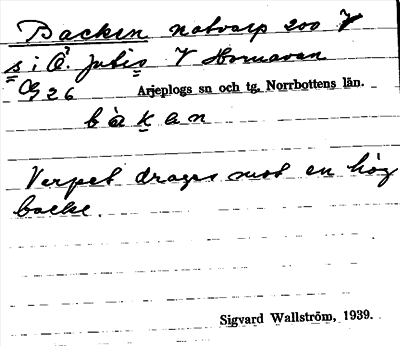 Backen notvarp 200 V
s i Ö. Jutis V Hornavan
26 Arjeplogs sn och tg, Norrbottens län.
b à k a n
Varpet drages mot en hög
backe.
Sigvard Wallström, 1939.